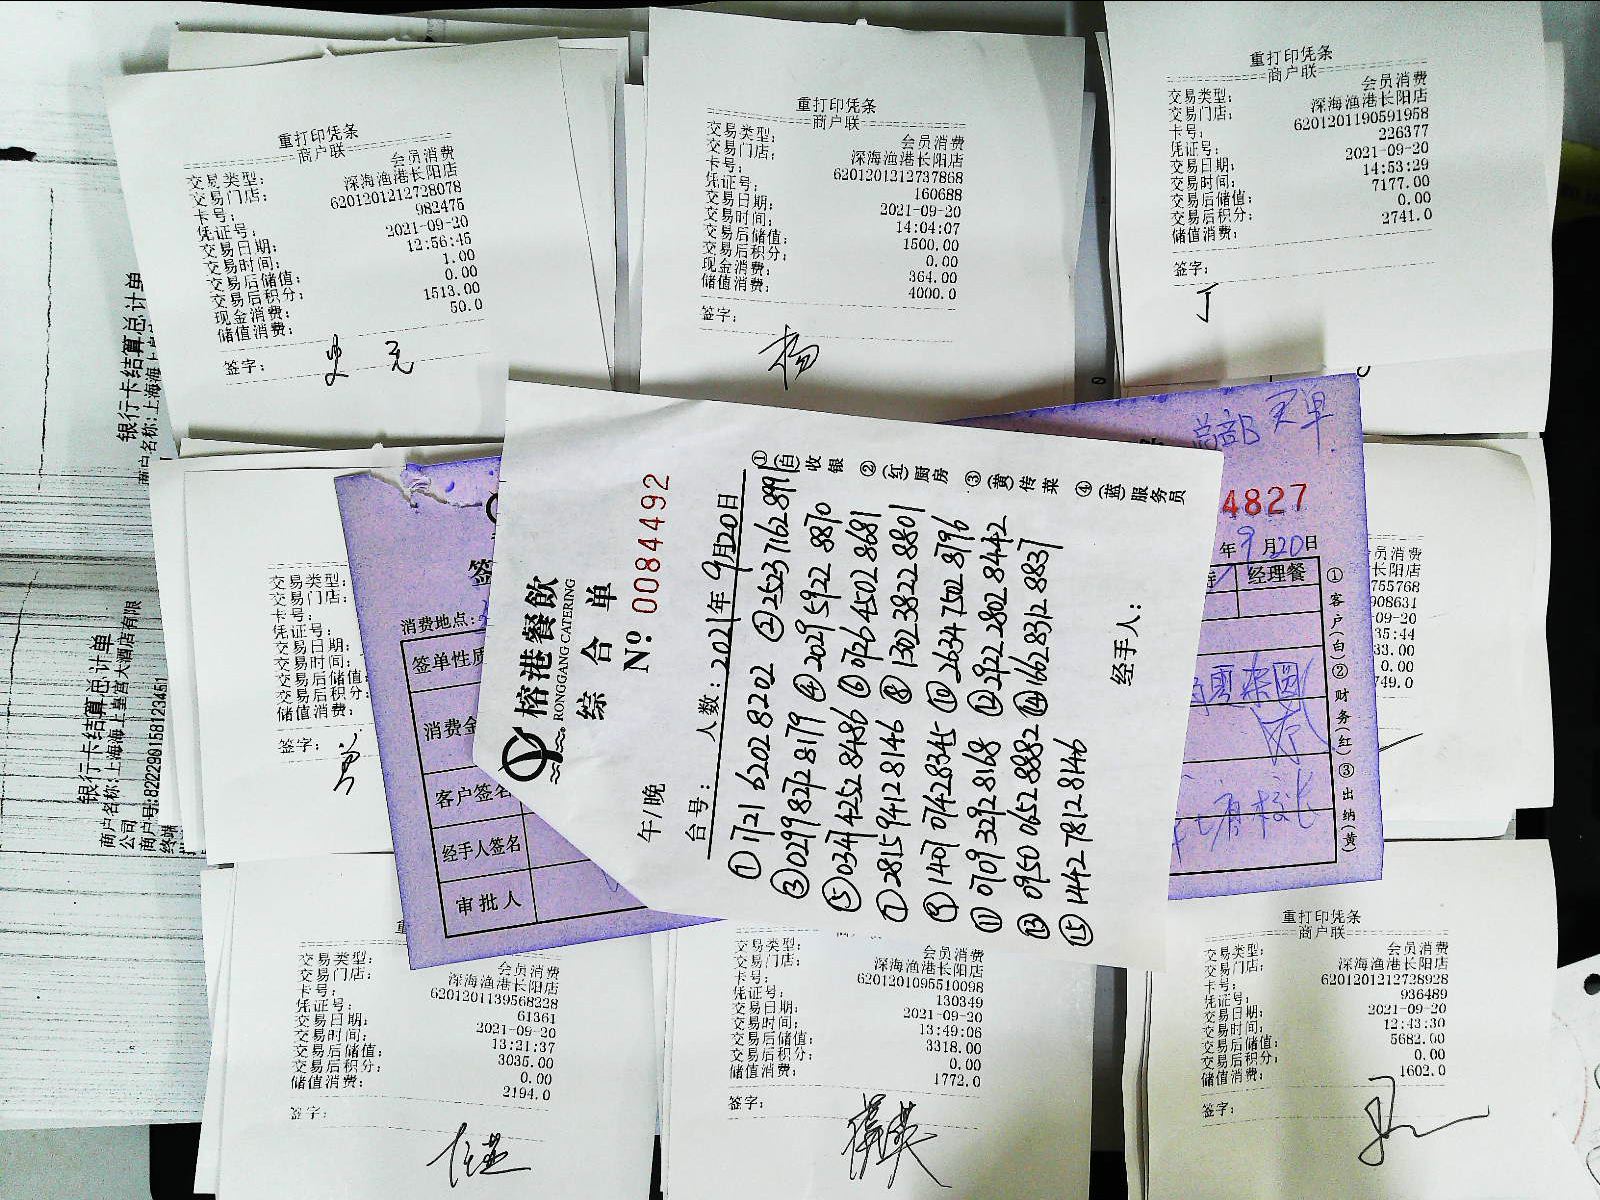 重打印凭条
商户联
交易类型： 会员消费
交易门店： 深海渔港长阳店
卡号： 6201201212728078
凭证号： 982475
交易日期： 2021-09-20
交易时间： 12:56:45
交易后储值： 1.00
交易后积分： 0.00
现金消费： 1513.00
储值消费： 50.0
签字：
重打印凭条
商户联
交易类型： 会员消费
交易门店： 深海渔港长阳店
卡号： 6201201212737868
凭证号： 160688
交易日期： 2021-09-20
交易时间： 14:04:07
交易后储值： 1500.00
交易后积分： 0.00
现金消费： 364.00
储值消费： 4000.0
签字：
杨
重打印凭条
商户联
交易类型： 会员消费
交易门店： 深海渔港长阳店
卡号： 6201201190591958
凭证号： 226377
交易日期： 2021-09-20
交易时间： 14:53:29
交易后储值： 7177.00
交易后积分： 0.00
储值消费： 2741.0
签字：
丁
银行卡结算总计单
商户名称:上海海上皇宫
银行卡结算总计单
商户名称:上海海上皇宫大酒店有限
公司
商户号:822290158123451
交易类型：
交易门店：
卡号：
凭证号：
交易日期：
交易时间：
交易后储值：
交易后积分：
储值消费：
签字：
签
消费地点：
签单性质
消费金
客户签名
经手人签名
审批人
榕港餐飲
RONGGANG CATERING
综合单
№: 0084492
午/晚
台号： 人数：2021年9月20日
①1721 6202 8202 ②2523 7162 8991
③0299 8272 8179 ④2029 5922 8870
⑤0347 4252 8486 ⑥0726 4502 8681
⑦2815 9412 8146 ⑧1302 3822 8801
⑨1407 0742 8345 ⑩2634 7502 8796
⑪0709 3292 8168 ⑫2922 2802 8442
⑬0950 0652 8882 ⑭1662 8312 8837
⑮1442 7812 8146
经手人：
①(白)收银
②(红)厨房
③(黄)传菜
④(蓝)服务员
总部买单
4827
年9月20日
经理餐
①客户(白)②财务(红)③出纳(黄)
员消费
长阳店
755768
908631
09-20
35:44
33.00
0.00
749.0
交易类型： 会员消费
交易门店： 深海渔港长阳店
卡号： 6201201139568228
凭证号： 61361
交易日期： 2021-09-20
交易时间： 13:21:37
交易后储值： 3035.00
交易后积分： 0.00
储值消费： 2194.0
签字：
交易类型： 会员消费
交易门店： 深海渔港长阳店
卡号： 6201201095510098
凭证号： 130349
交易日期： 2021-09-20
交易时间： 13:49:06
交易后储值： 3318.00
交易后积分： 0.00
储值消费： 1772.0
签字：
重打印凭条
商户联
交易类型： 会员消费
交易门店： 深海渔港长阳店
卡号： 6201201212728928
凭证号： 936489
交易日期： 2021-09-20
交易时间： 12:43:30
交易后储值： 5682.00
交易后积分： 0.00
储值消费： 1602.0
签字：